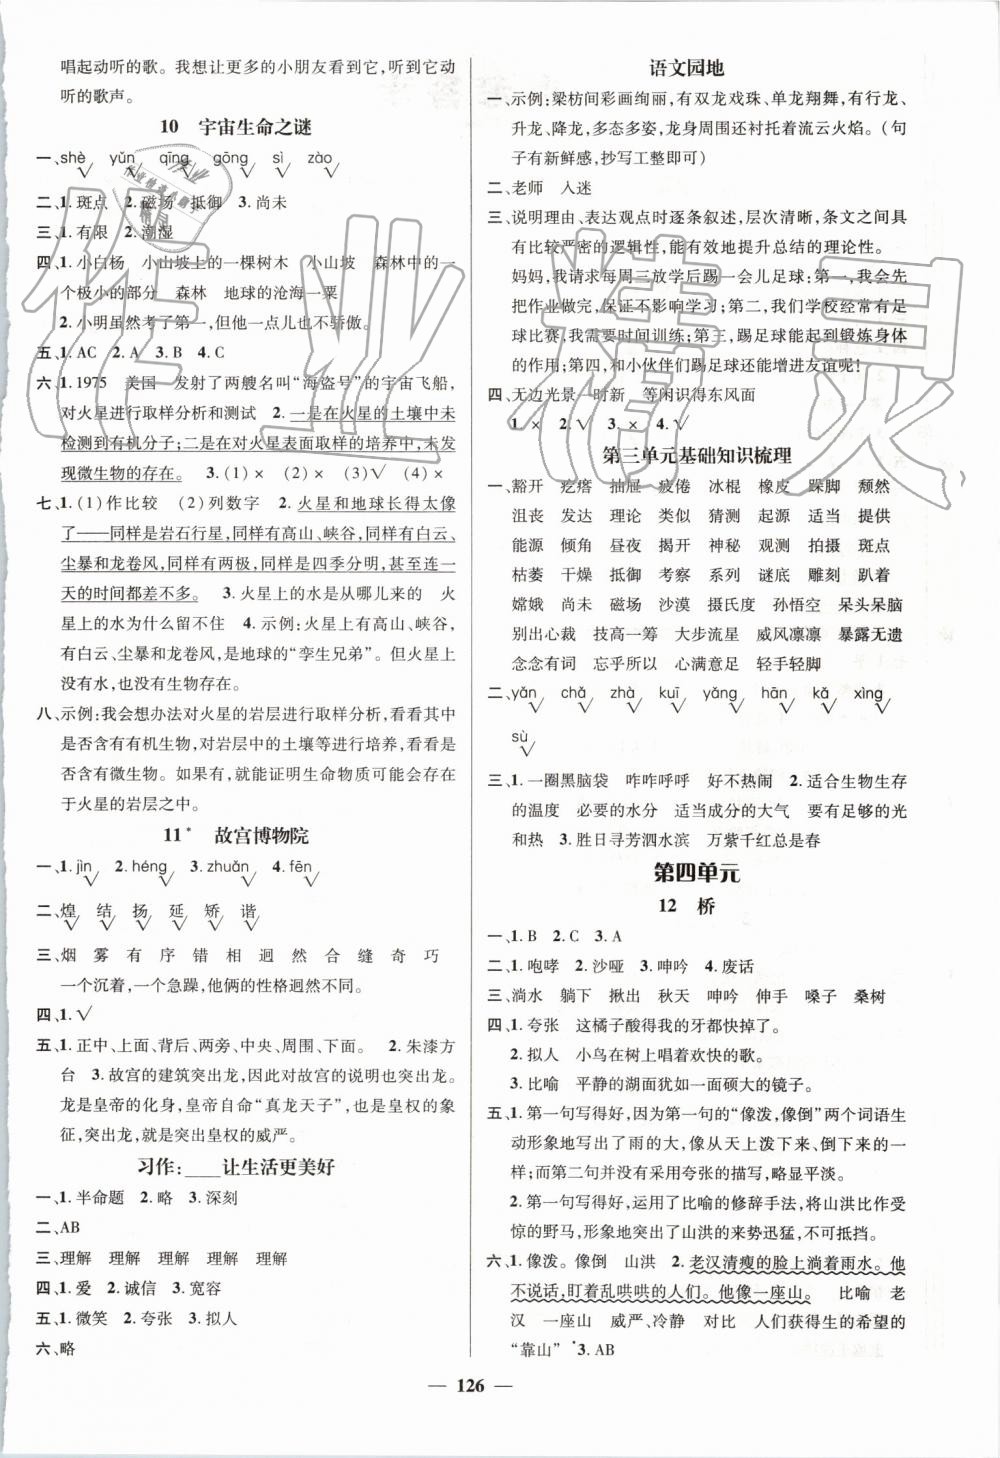 唱起动听的歌。我想让更多的小朋友看到它,听到它动
听的歌声。
10 宇宙生命之谜
一、shè yǔn qīng gōng sì zào
√ √ √ √ √ √
二、1. 斑点 2. 磁场 抵御 3. 尚未
三、1. 有限 2. 潮湿
四、1. 小白杨 小山坡上的一棵树木 小山坡 森林中的一
个极小的部分 森林 地球的沧海一粟
2. 小明虽然考了第一,但他一点儿也不骄傲。
五、1. AC 2. A 3. B 4. C
六、1. 1975 美国 发射了两艘名叫“海盗号”的宇宙飞船,
对火星进行取样分析和测试 2. 一是在火星的土壤中未
检测到有机分子;二是在对火星表面取样的培养中,未发
现微生物的存在。 3. (1) × (2) × (3) √ (4) ×
七、1. (1)作比较 (2)列数字 2. 火星和地球长得太像
了——同样是岩石行星,同样有高山、峡谷,同样有白云、
尘暴和龙卷风,同样有两极,同样是四季分明,甚至连一
天的时间都差不多。 3. 火星上的水是从哪儿来的 火
星上的水为什么留不住 4. 示例:火星上有高山、峡谷,
有白云、尘暴和龙卷风,是地球的“孪生兄弟”。但火星上
没有水,也没有生物存在。
八、示例:我会想办法对火星的岩层进行取样分析,看看其中
是否含有有机生物,对岩层中的土壤等进行培养,看看是
否含有微生物。如果有,就能证明生命物质可能会存在
于火星的岩层之中。
11* 故宫博物院
一、1. jìn 2. héng 3. zhuǎn 4. fēn
√ √ √ √
二、煌 结 扬 延 矫 谐
√ √ √ √ √ √
三、烟 雾 有 序 错 相 迥 然 合 缝 奇 巧
一个沉着,一个急躁,他俩的性格迥然不同。
四、1. √
五、1. 正中、上面、背后、两旁、中央、周围、下面。 2. 朱漆方
台 3. 故宫的建筑突出龙,因此对故宫的说明也突出龙。
龙是皇帝的化身,皇帝自命“真龙天子”,也是皇权的象
征,突出龙,就突出皇权的威严。
习作:____让生活更美好
一、1. 半命题 2. 略 3. 深刻
二、AB
三、理解 理解 理解 理解 理解
四、1. 爱 2. 诚信 3. 宽容
五、1. 微笑 2. 夸张 3. 拟人
六、略
语文园地
一、示例:梁枋间彩画绚丽,有双龙戏珠、单龙翔舞,有行龙、
升龙、降龙,多态多姿,龙身周围还衬托着流云火焰。(句
子有新鲜感,抄写工整即可)
二、老师 入迷
三、说明理由、表达观点时逐条叙述,层次清晰,条文之间具
有比较严密的逻辑性,能有效地提升总结的理论性。
妈妈,我请求每周三放学后踢一会儿足球:第一,我会先
把作业做完,保证不影响学习;第二,我们学校经常有足
球比赛,我需要时间训练;第三,踢足球能起到锻炼身体
的作用;第四,和小伙伴们踢足球能增进友谊呢!
四、无边光景一时新 等闲识得东风面
1. × 2. √ 3. × 4. √
第三单元基础知识梳理
一、豁开 疙瘩 抽屉 疲倦 冰棍 橡皮 跺脚 颓然
沮丧 发达 理论 类似 猜测 起源 适当 提供
能源 倾角 昼夜 揭开 神秘 观测 拍摄 斑点
枯萎 干燥 抵御 考察 系列 谜底 雕刻 趴着
嫦娥 尚未 磁场 沙漠 摄氏度 孙悟空 呆头呆脑
别出心裁 技高一筹 大步流星 威风凛凛 暴露无遗
念念有词 忘乎所以 心满意足 轻手轻脚
二、yǎn chǎ zhà kuī yǎng hān kǎ xìng
√ √ √ √ √ √ √ √
sù
√
三、1. 一圈黑脑袋 咋咋呼呼 好不热闹 2. 适合生物生存
的温度 必要的水分 适当成分的大气 要有足够的光
和热 3. 胜日寻芳泗水滨 万紫千红总是春
第四单元
12 桥
一、1. B 2. C 3. A
二、1. 咆哮 2. 沙哑 3. 呻吟 4. 废话
三、淌水 躺下 揪出 秋天 呻吟 伸手 嗓子 桑树
四、1. 夸张 这橘子酸得我的牙都快掉了。
2. 拟人 小鸟在树上唱着欢快的歌。
3. 比喻 平静的湖面犹如一面硕大的镜子。
五、1. 第一句写得好,因为第一句的“像泼,像倒”两个词语生
动形象地写出了雨的大,像从天上泼下来、倒下来的一
样;而第二句并没有采用夸张的描写,略显平淡。
2. 第一句写得好,运用了比喻的修辞手法,将山洪比作受
惊的野马,形象地突出了山洪的来势迅猛,不可抵挡。
六、1. 像泼。像倒 山洪 2. 老汉清瘦的脸上淌着雨水。他
不说话,盯着乱哄哄的人们。他像一座山。 比喻 老
汉 一座山 威严、冷静 对比 人们获得生的希望的
“靠山” 3. AB
— 126 —
作业精灵